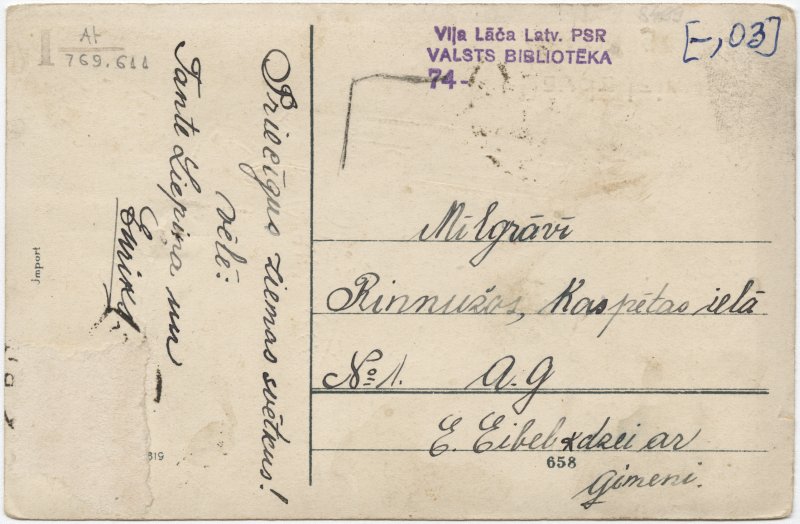 At
769.611
Viļa Lāča Latv. PSR
VALSTS BIBLIOTĒKA
74-
[-,03]
Priecīgus ziemas svētkus!
vēlē:
Tante Liepiņa un
Jmport
819
Mīlgrāvī
Rinnužos, Kaspētas ielā
№ 1. A.G
E. Eibel kdzei ar
ģimeni.
658